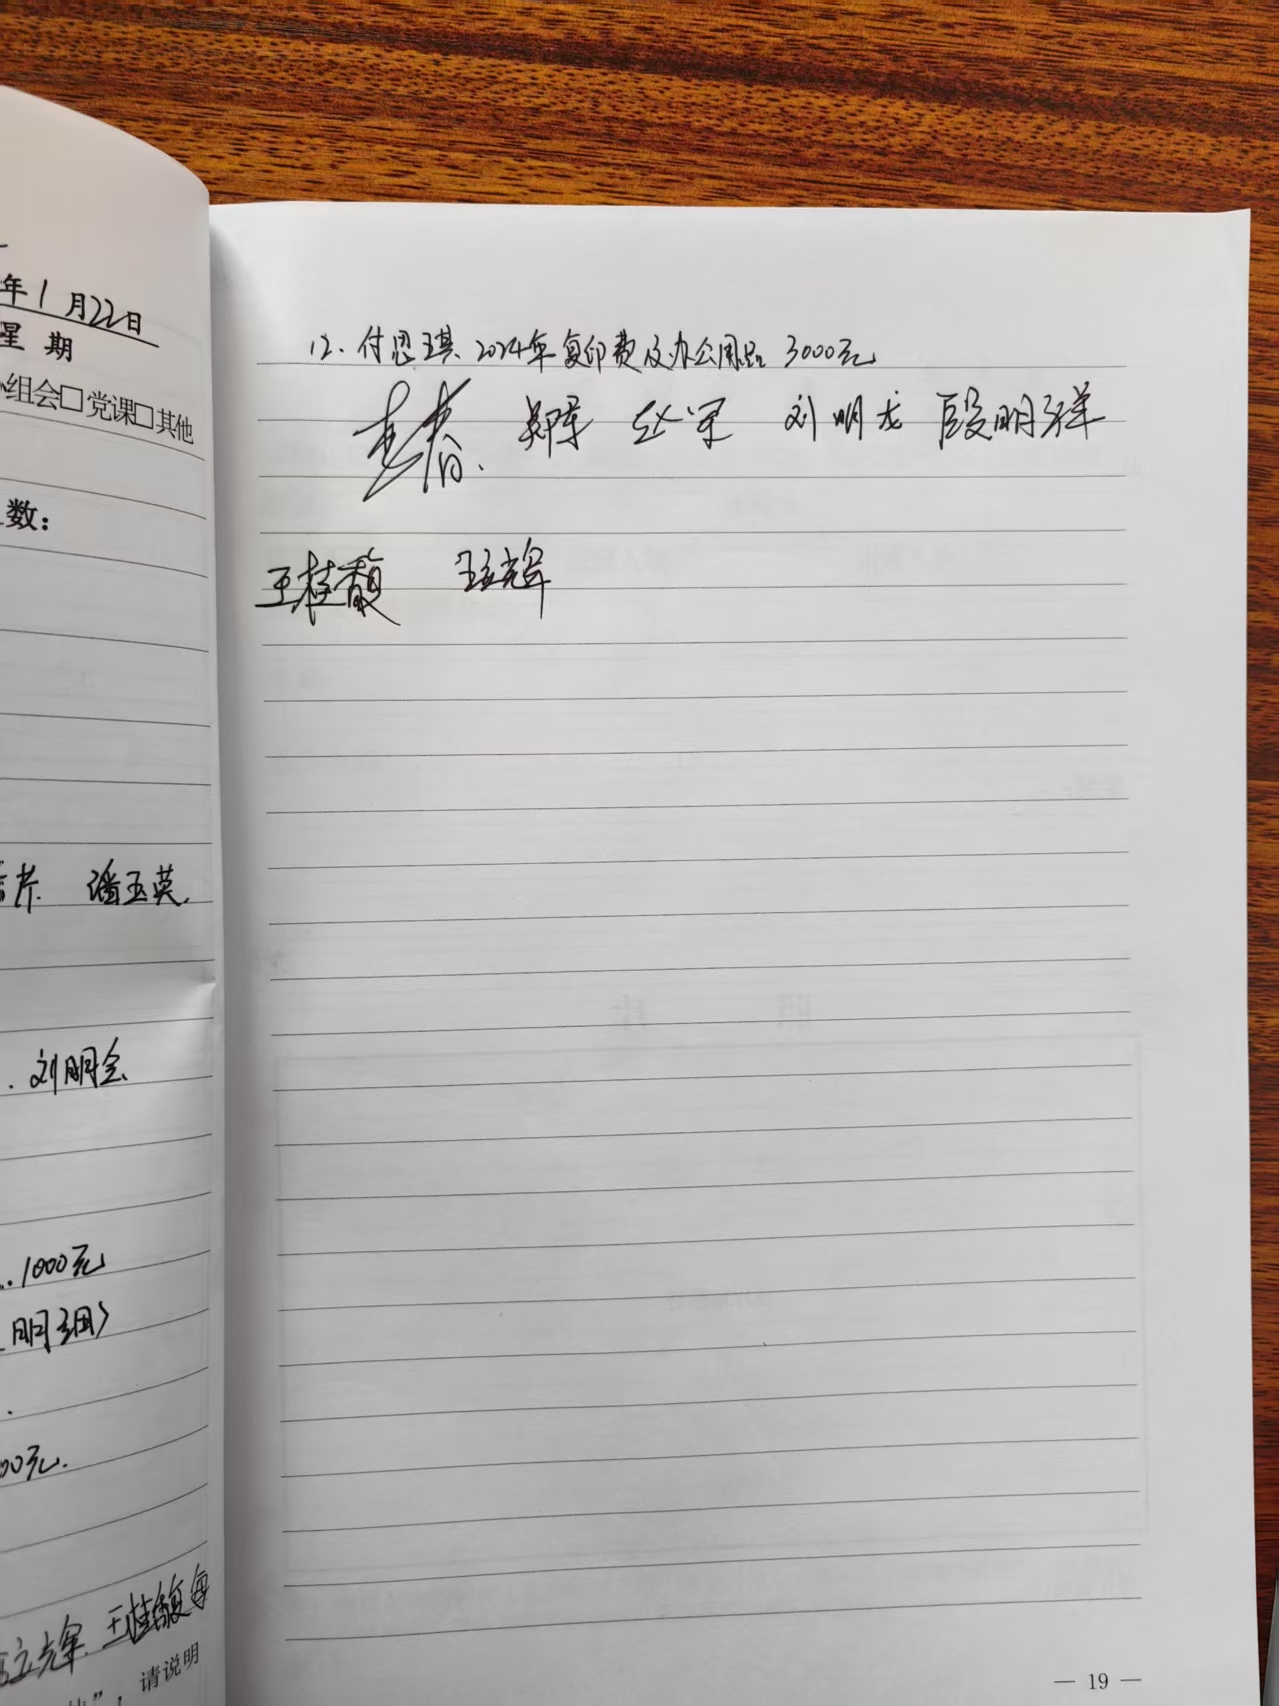 年1月22日
星 期
小组会□党课□其他
数:
芹. 潘玉英.
. 刘明会
.. 1000元
明
.
00元.
王桂馥
请说明
12. 付思琪. 2024年复印费及办公用品 3000元
春. 郑军 赵军 刘明龙 段明祥
王桂馥
— 19 —